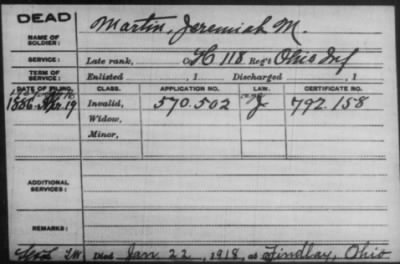 DEAD
NAME OF SOLDIER: Martin, Jeremiah M.
SERVICE: Late rank, Co. H 118 Reg't Ohio Inf
TERM OF SERVICE: Enlisted , 1 Discharged , 1
DATE OF FILING. CLASS. APPLICATION NO. LAW. CERTIFICATE NO.
1886 Apr. 19 Invalid, 570.502 792.158
Widow,
Minor,
ADDITIONAL SERVICES:
REMARKS:
Died Jan 22, 1918, at Findlay, Ohio